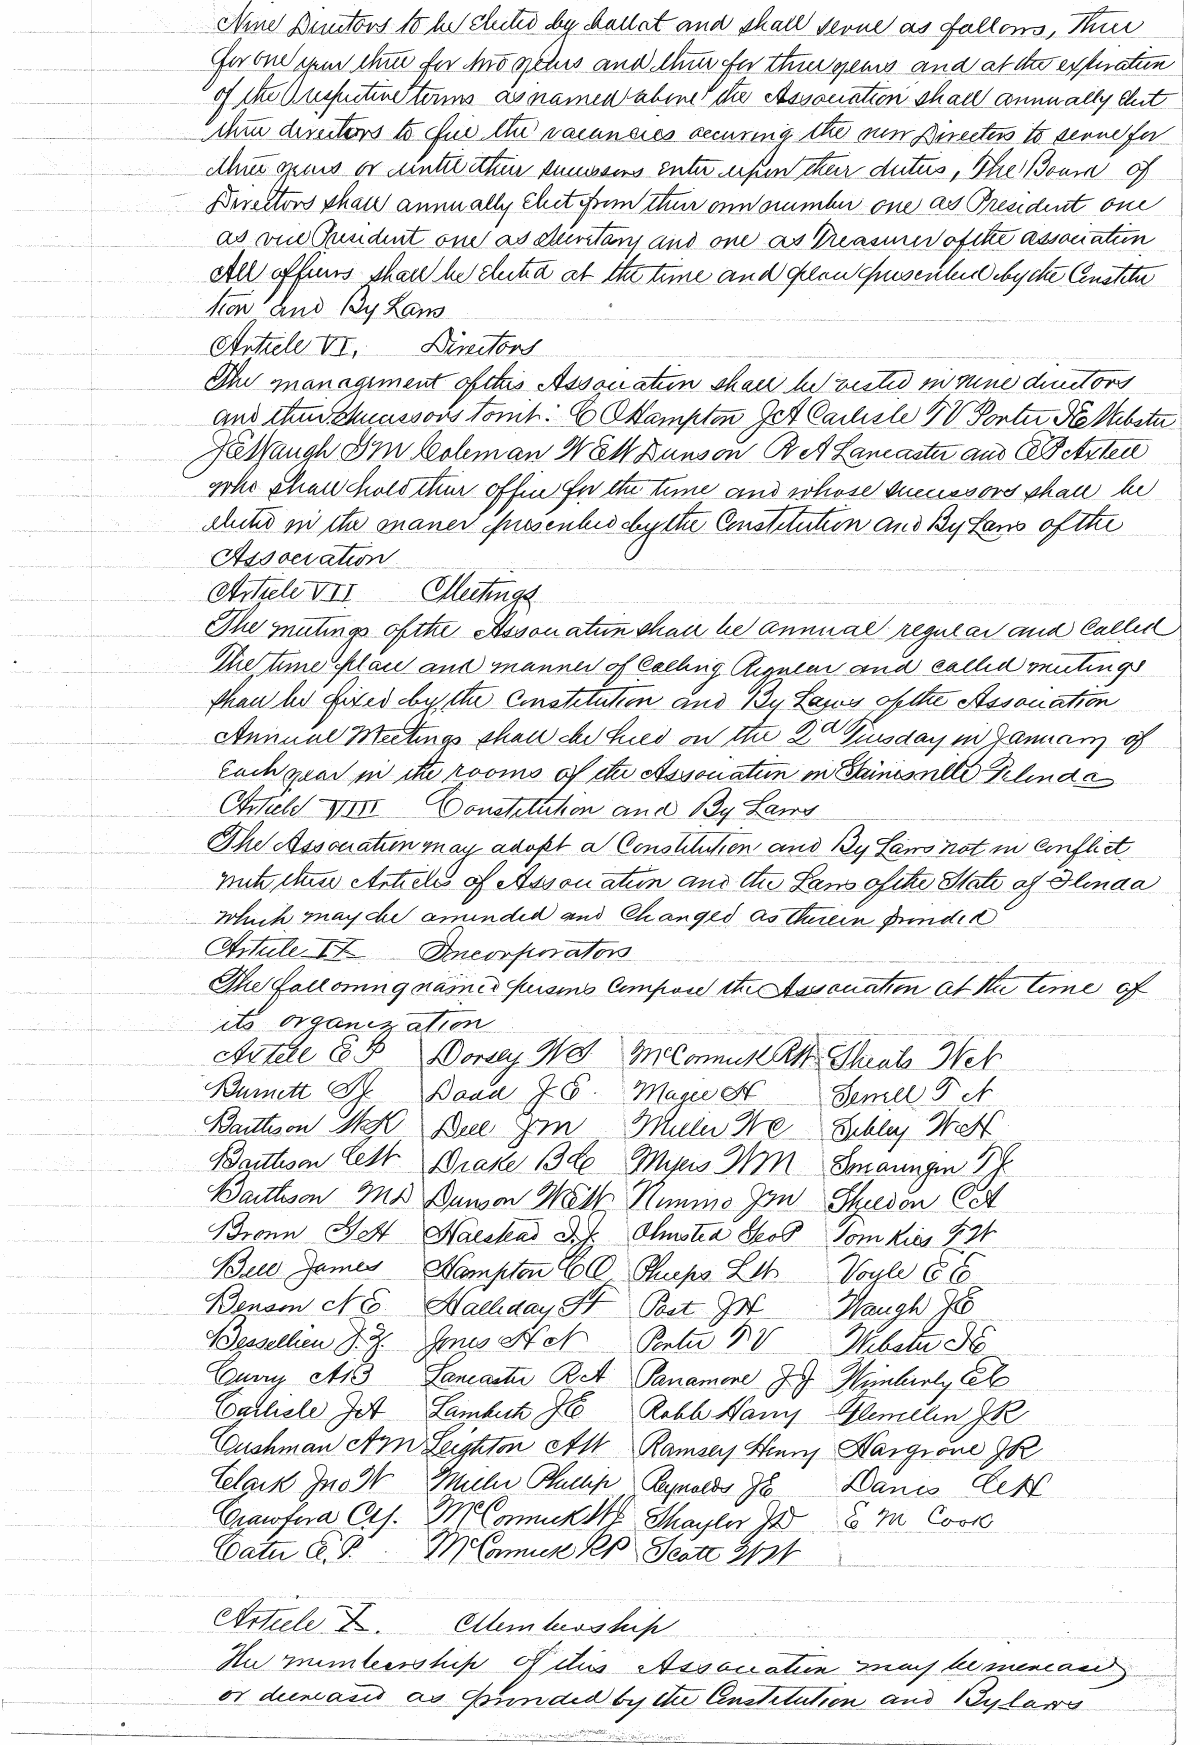 Nine Directors to be Elected by ballot and shall serve as follows, Three
for one year three for two years and three for three years and at the expiration
of the respective terms as named above the Association shall annually Elect
three directors to fill the vacancies occuring the new Directors to serve for
three years or until their successors enter upon their duties, The Board of
Directors shall annually Elect from their own number one as President one
as vice President one as Secretary and one as Treasurer of the association
All officers shall be Elected at the time and place prescribed by the Constitu
tion and By Laws
Article VI. Directors
The management of this Association shall be vested in nine directors
and their Successors towit: C O Hampton J A Carlisle T V Porter J E Webster
J E Waugh J M Coleman W E W Dunson R A Lancaster and E P Axtell
who shall hold their office for the time and whose successors shall be
elected in the maner prescribed by the Constitution and By Laws of the
Association
Article VII Meetings
The meetings of the Association shall be annual regular and Called
The time place and manner of Calling Regular and called meetings
shall be fixed by the Constitution and By Laws of the Association
Annual Meetings shall be held on the 2d Tuesday in January of
Each year in the rooms of the Association in Gainesville Florida
Article VIII Constitution and By Laws
The Association may adopt a Constitution and By Laws not in Conflict
with these Articles of Association and the Laws of the State of Florida
which may be amended and Changed as therein provided
Article IX Incorporators
The following named persons Compose the Association at the time of
its organization
Axtell E P Dorsey W S McCormick R W Sheats W N
Burnett S J Daud J E. Magee H Sewell T A
Baithison W K Dell J M Miller W C Sibley W H
Baithison C W Drake B C Myers W M Smaringin T J
Baithison M D Dunson W E W Nimmo J M Sheldon C A
Brown G A Halstead D. J. Olmsted Geo P Tomkies F W
Bell James Hampton C O Phelps L W Voyle E E
Benson N E Halliday S F Post J H Waugh J E
Bessellieu J. Z. Jones H N Porter T V Webster J E
Curry A B Lancaster R A Panamore J J Wimberly E C
Carlisle J A Lambeth J E Robb Harry Flewellin J R
Cushman A M Leighton A W Ramsey Henry Hargrove J R
Clark Jno W Miller Phillip Reynolds J E Davis C H
Crawford C S. McCormick W J Shaylor J D E M Cook
Cater E. P. McCormick R P Scott W W
Article X. Membership
The membership of this Association may be increased
or decreased as provided by the Constitution and By laws